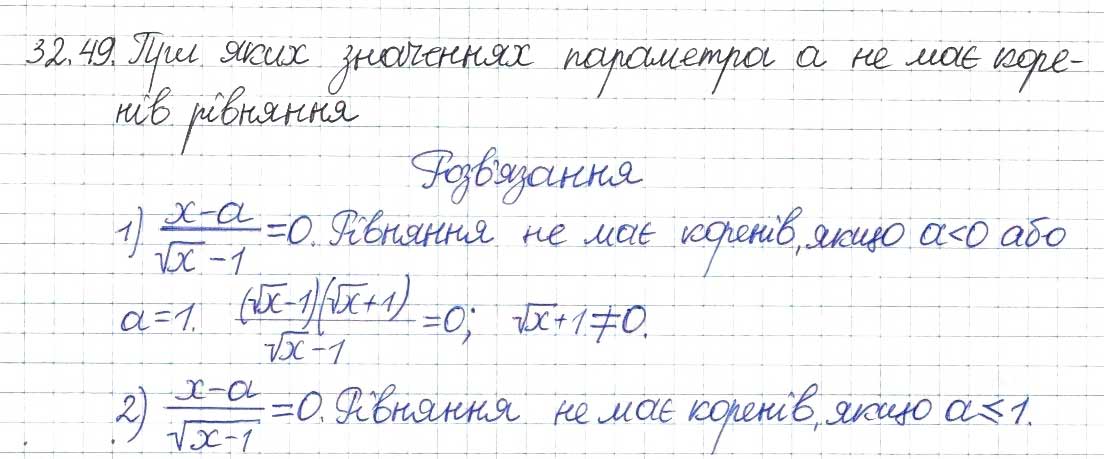 32.49. При яких значеннях параметра а не має коре-
нів рівняння
Розв'язання
1) (x-a)/(√x - 1) = 0. Рівняння не має коренів, якщо a<0 або
a=1. ((√x-1)(√x+1))/(√x-1) = 0; √x+1≠0.
2) (x-a)/(√(x-1)) = 0. Рівняння не має коренів, якщо a≤1.